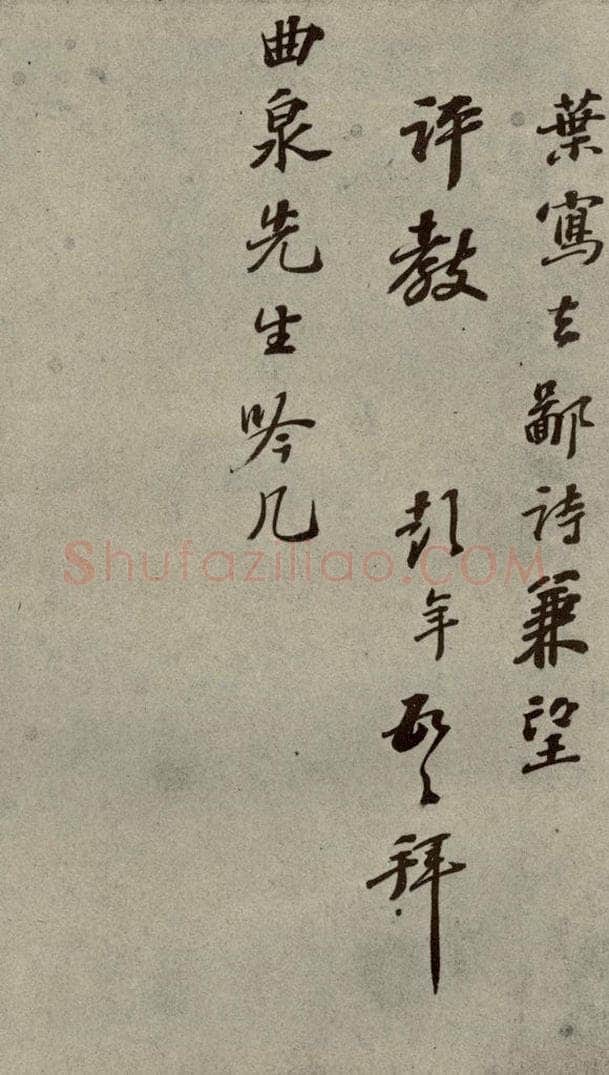 葉寫去鄙詩兼望
評教 彭年拜
曲泉先生吟几
Shufaziliao.COM